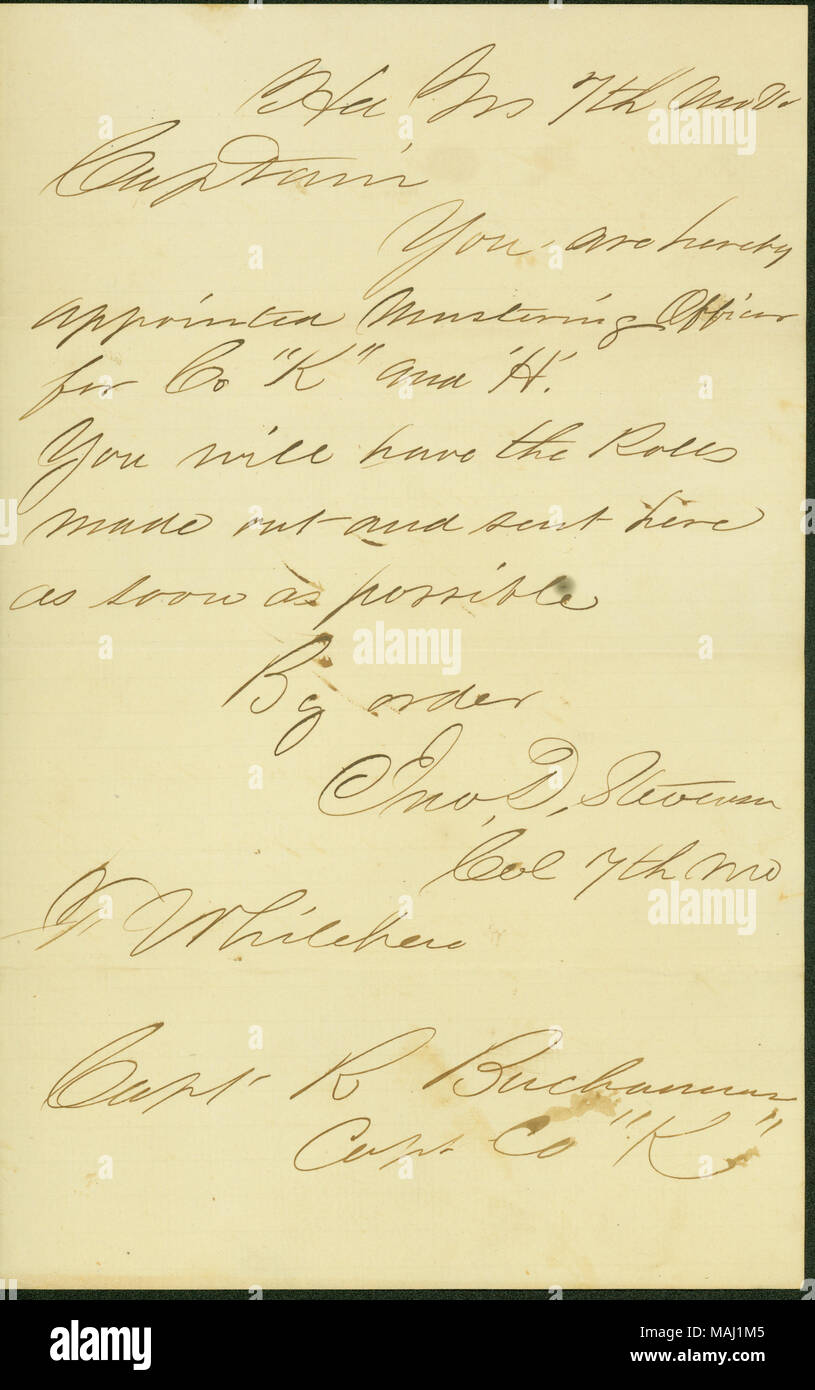 Hd Qrs 7th Mo Vo
Captain
You are hereby
appointed Mustering Officer
for Co "K" and "H".
You will have the Rolls
made out and sent here
as soon as possible
By order
Jno. D. Stevenson
Col 7th Mo
Capt R Buchanan
Capt Co "K"
alamy
Image ID: MAJ1M5
www.alamy.com